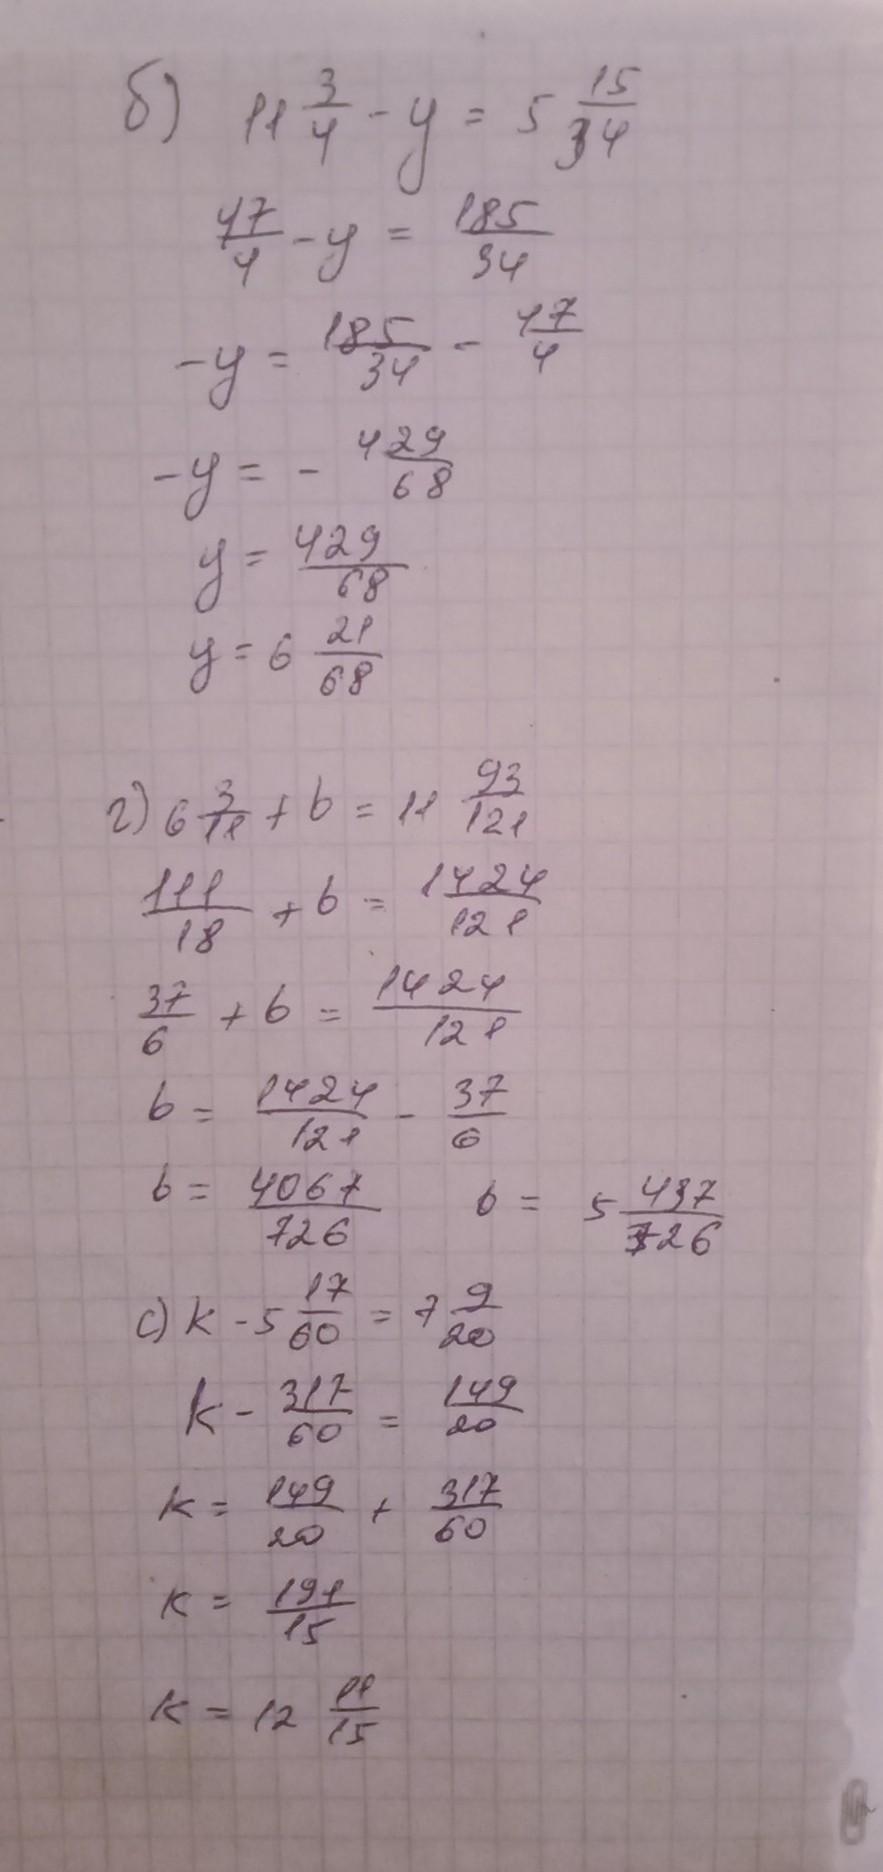 б) 11 3/4 - y = 5 15/34
47/4 - y = 185/34
-y = 185/34 - 47/4
-y = - 429/68
y = 429/68
y = 6 21/68
г) 6 3/11 + b = 11 93/121
111/18 + b = 1424/121
37/6 + b = 1424/121
b = 1424/121 - 37/6
b = 4067/726 b = 5 437/726
с) k - 5 17/60 = 7 9/20
k - 317/60 = 149/20
k = 149/20 + 317/60
k = 191/15
k = 12 11/15